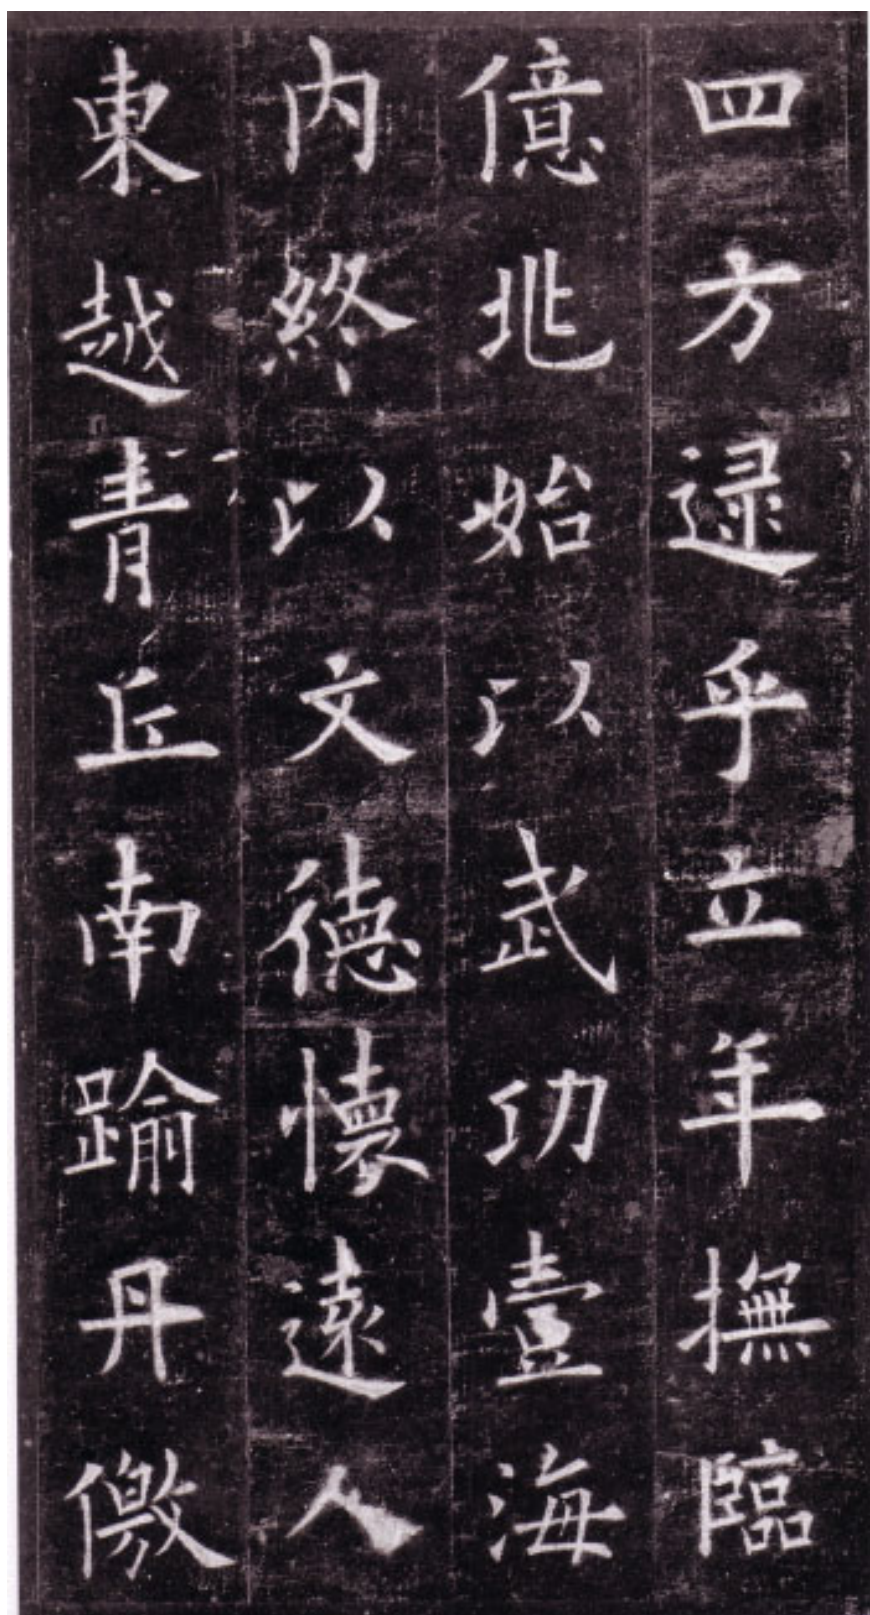 四方逮乎立年撫臨
億兆始以武功壹海
内終以文德懷遠人
東越青丘南踰丹儌